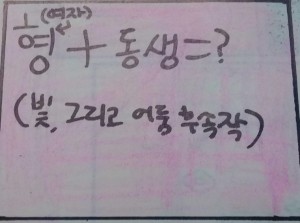 (여자)
형 + 동생 = ?
(빛, 그리고 어둠 후속작)